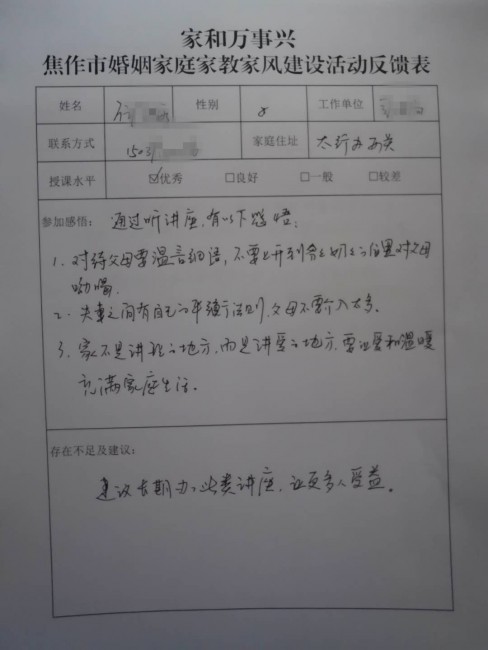 家和万事兴
焦作市婚姻家庭家教家风建设活动反馈表
姓名 性别 女 工作单位
联系方式 150 家庭住址 太行办西关
授课水平 ☑优秀 □良好 □一般 □较差
参加感悟：通过听讲座，有以下感悟：
1、对待父母要温言细语，不要上升到爷爷奶奶的位置对父母
吆喝。
2、夫妻之间有自己的 行法则，父母不要介入太多。
3、家不是讲理的地方，而是讲爱的地方，要让爱和温暖
充满家庭生活。
存在不足及建议：
建议长期办此类讲座，让更多人受益。